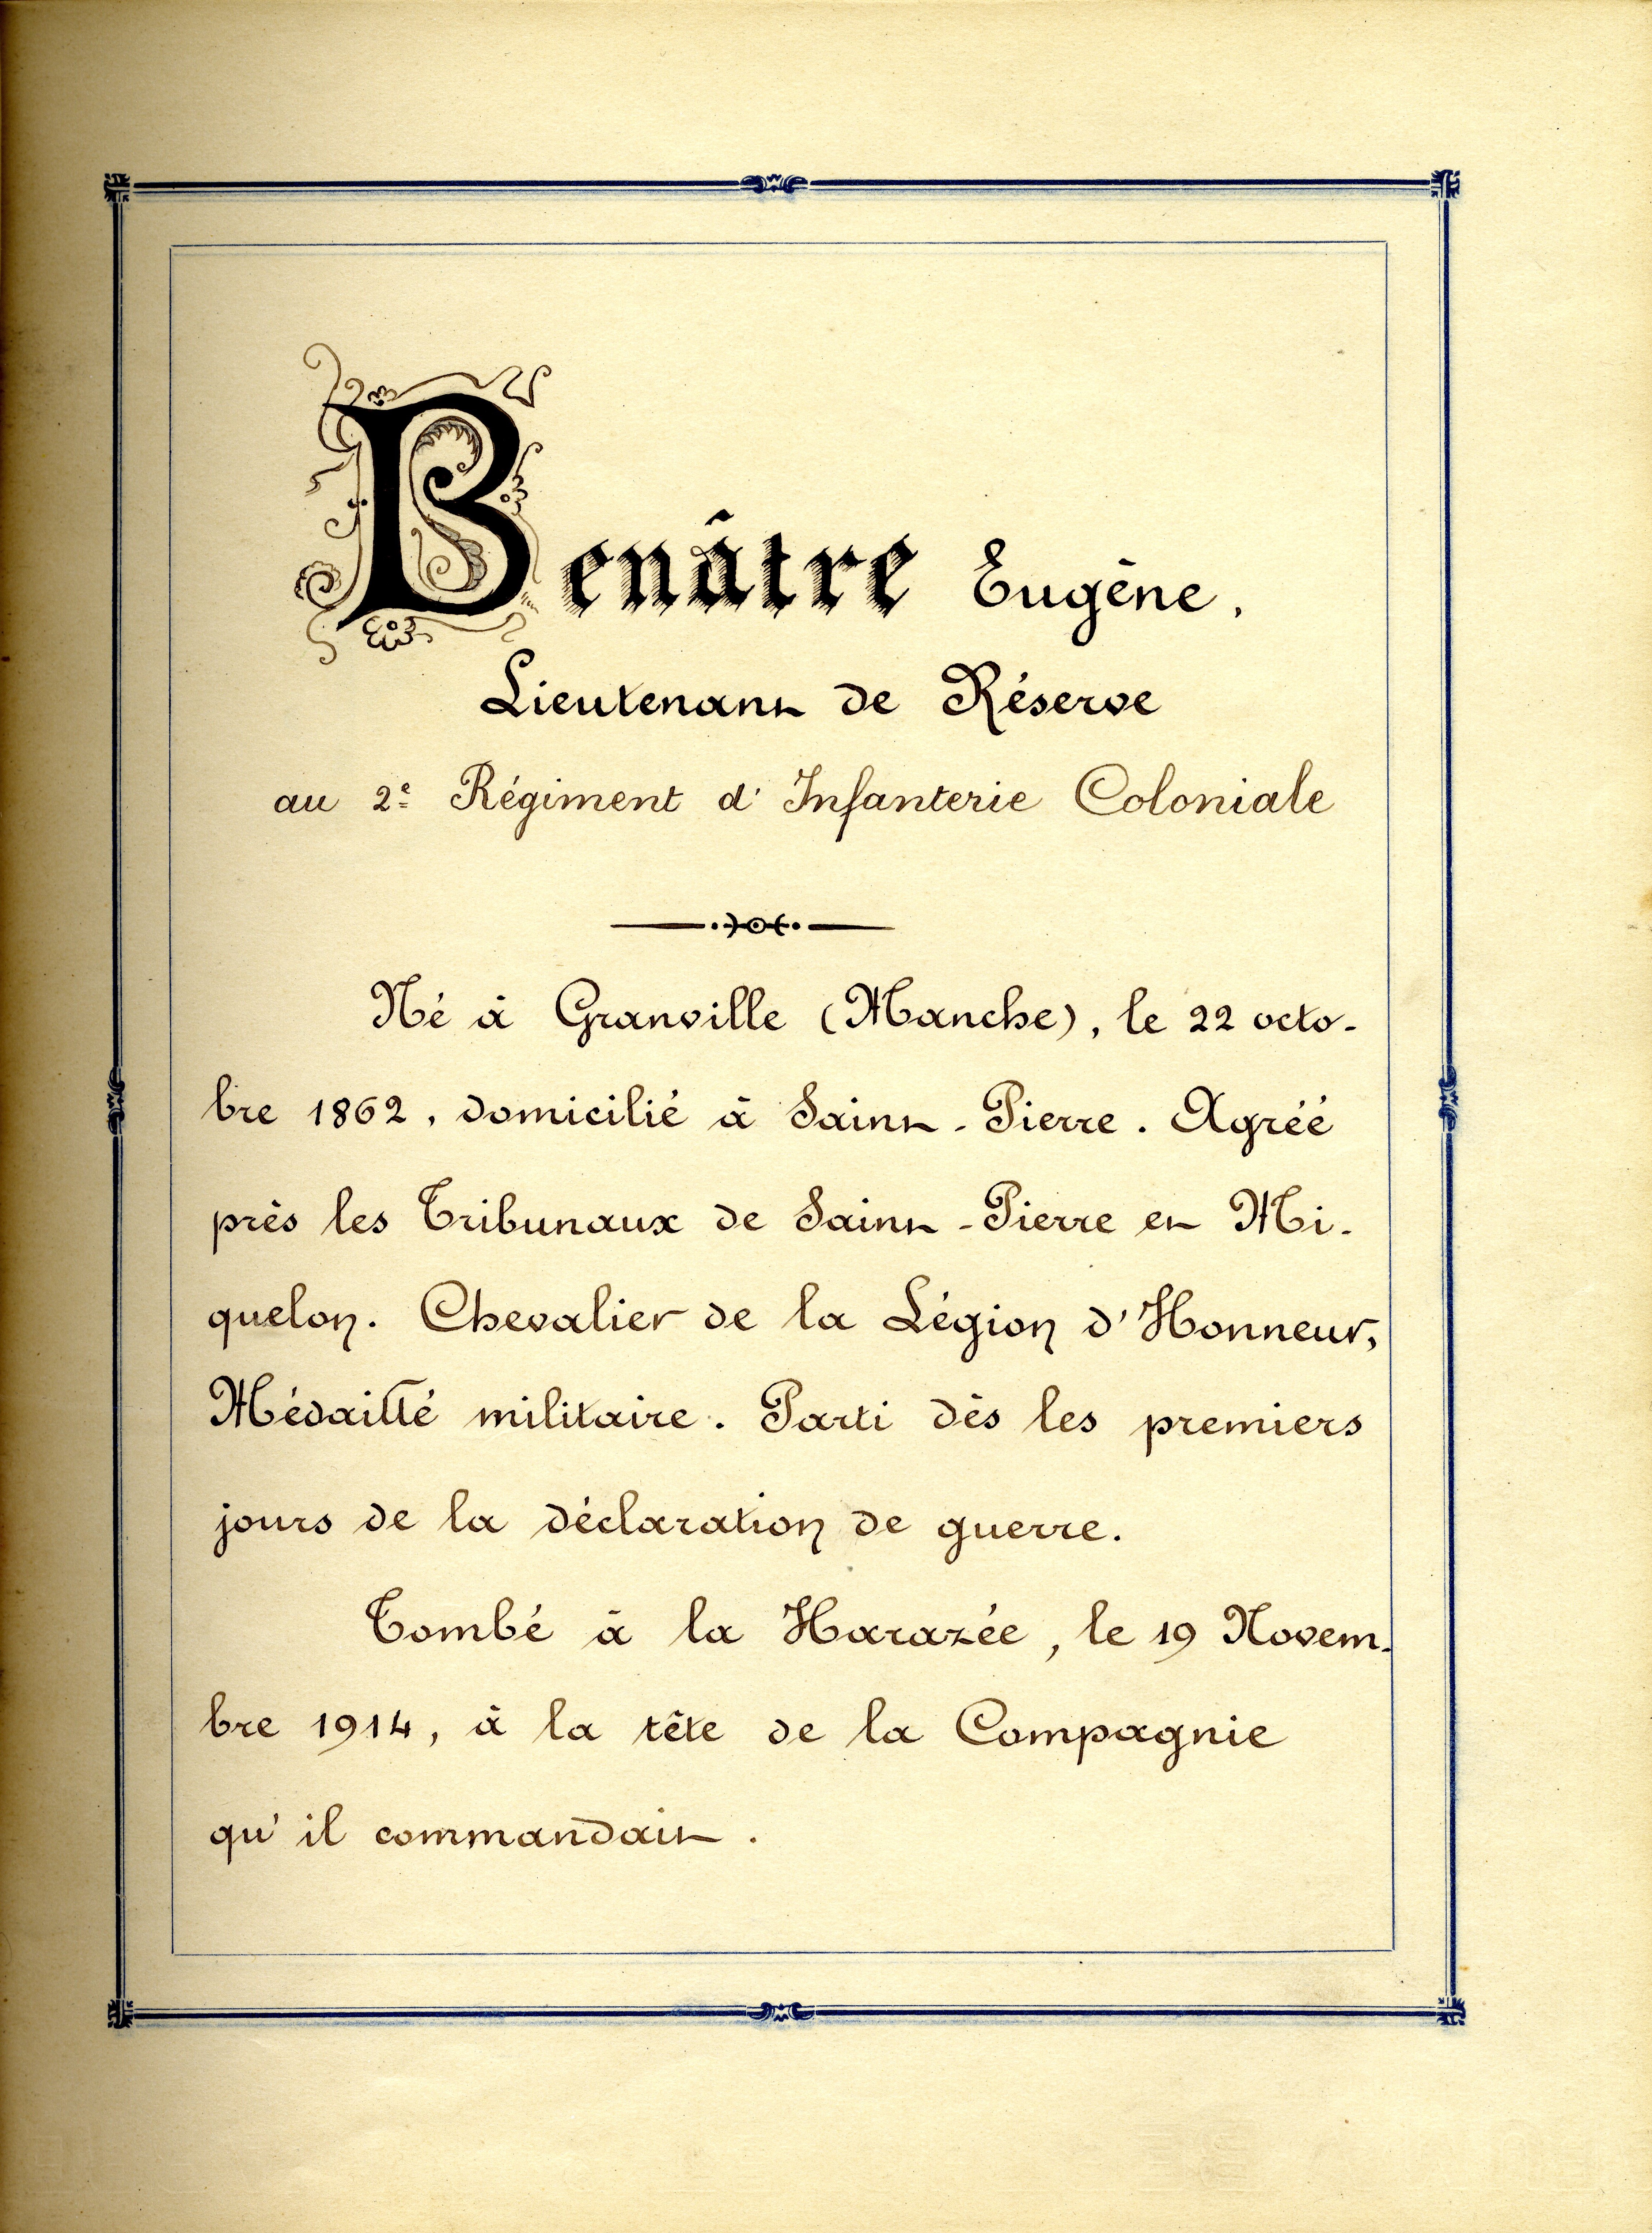 Benâtre Eugène,
Lieutenant de Réserve
au 2e Régiment d'Infanterie Coloniale
Né à Granville (Manche), le 22 octo-
bre 1862, domicilié à Saint-Pierre. Agréé
près les Tribunaux de Saint-Pierre et Mi-
quelon. Chevalier de la Légion d'Honneur,
Médaillé militaire. Parti dès les premiers
jours de la déclaration de guerre.
Tombé à la Harazée, le 19 Novem-
bre 1914, à la tête de la Compagnie
qu'il commandait.